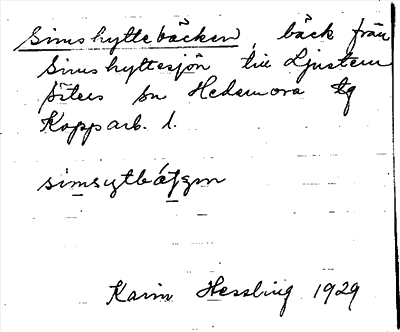 Simshyttebäcken, bäck från
Simshyttesjön till Ljustern
Säters sn Hedemora tg
Kopparb. l.
Karin Hessling 1929